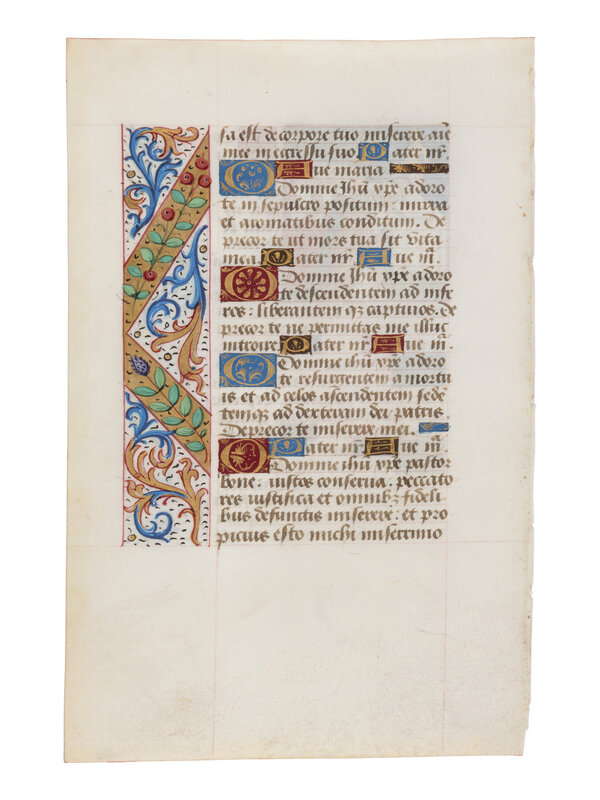 sa est de corpore tuo miserere aīe
mee in egressu suo Pater nr̄.
Aue maria
O Domine Ihū xp̄e adoro
te in sepulcro positum: mirra
et aromatibus conditum. De
precor te ut mors tua sit vita
mea. Pater nr̄. Aue m̄.
O Domine Ihū xp̄e adoro
te descendentem ad infe
ros: liberantem qȝ captiuos. De
precor te ne permittas me illuc
introire. Pater nr̄. Aue m̄.
O Domine ihū xp̄e adoro
te resurgentem a mortu
is et ad celos ascendentem sede
temqȝ ad dexteram dei patris.
Deprecor te miserere mei.
Pater nr̄. Aue m̄.
O Domine ihū xp̄e pastor
bone: iustos conserua. peccato
res iustifica et omnibȝ fideli
bus defunctis miserere: et pro
picius esto michi miserrimo